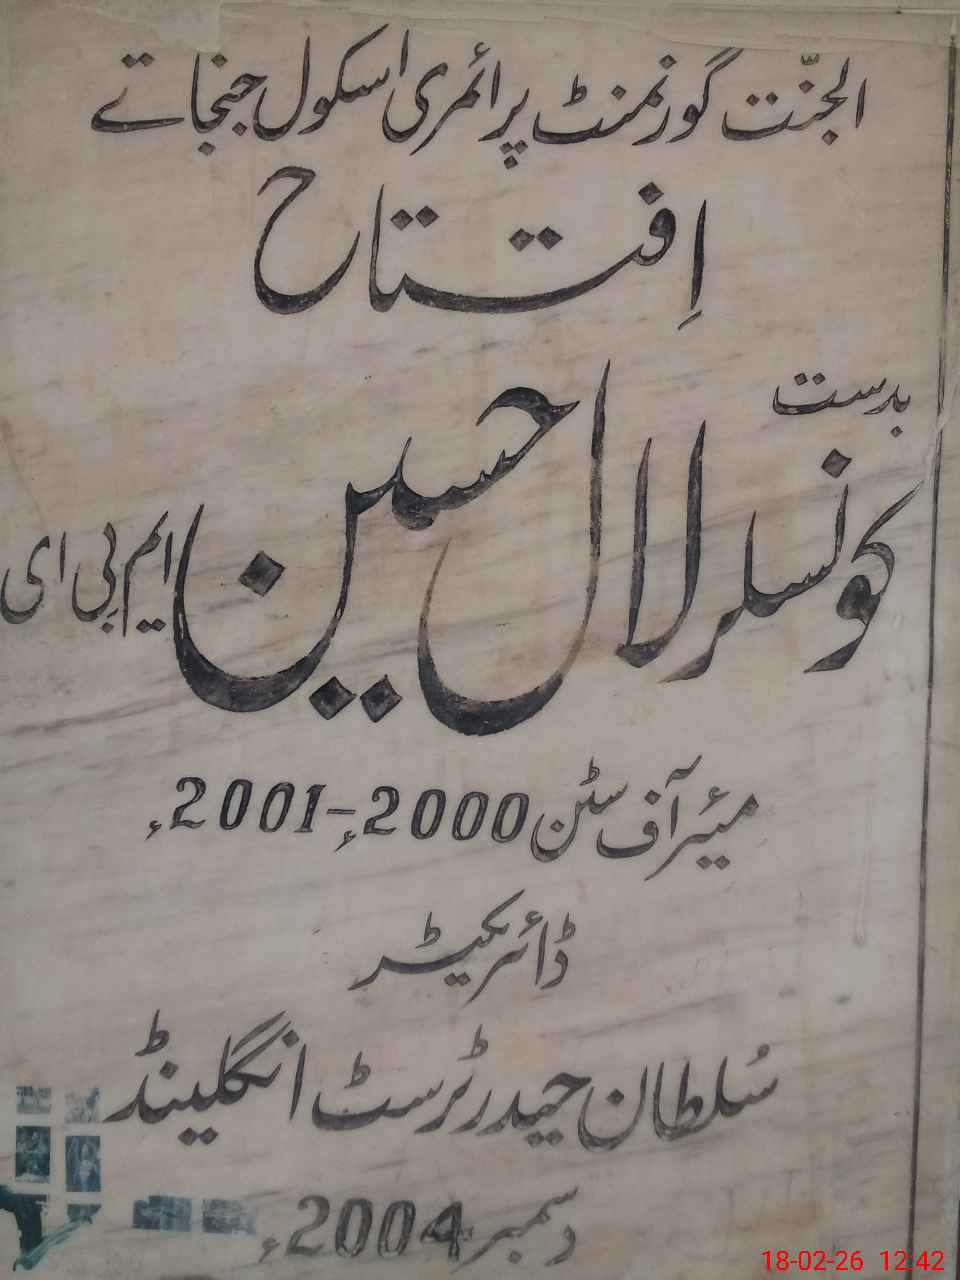 الجنّت گورنمنٹ پرائمری اسکول جنجاتے
اِفتتاح
بدست
کونسلر لال حسین ایم بی ای
میئر آف سٹن 2000ء-2001ء
ڈائریکٹر
سُلطان حیدر ٹرسٹ انگلینڈ
دسمبر 2004ء
18-02-26 12:42